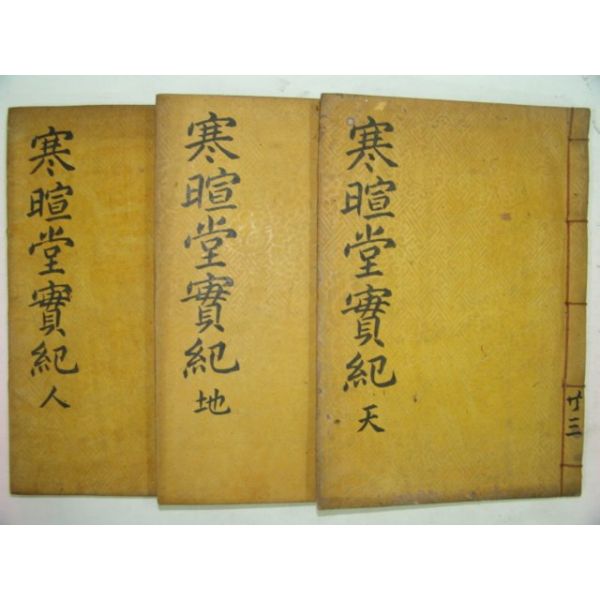 寒暄堂實紀 天
寒暄堂實紀 地
寒暄堂實紀 人
共三